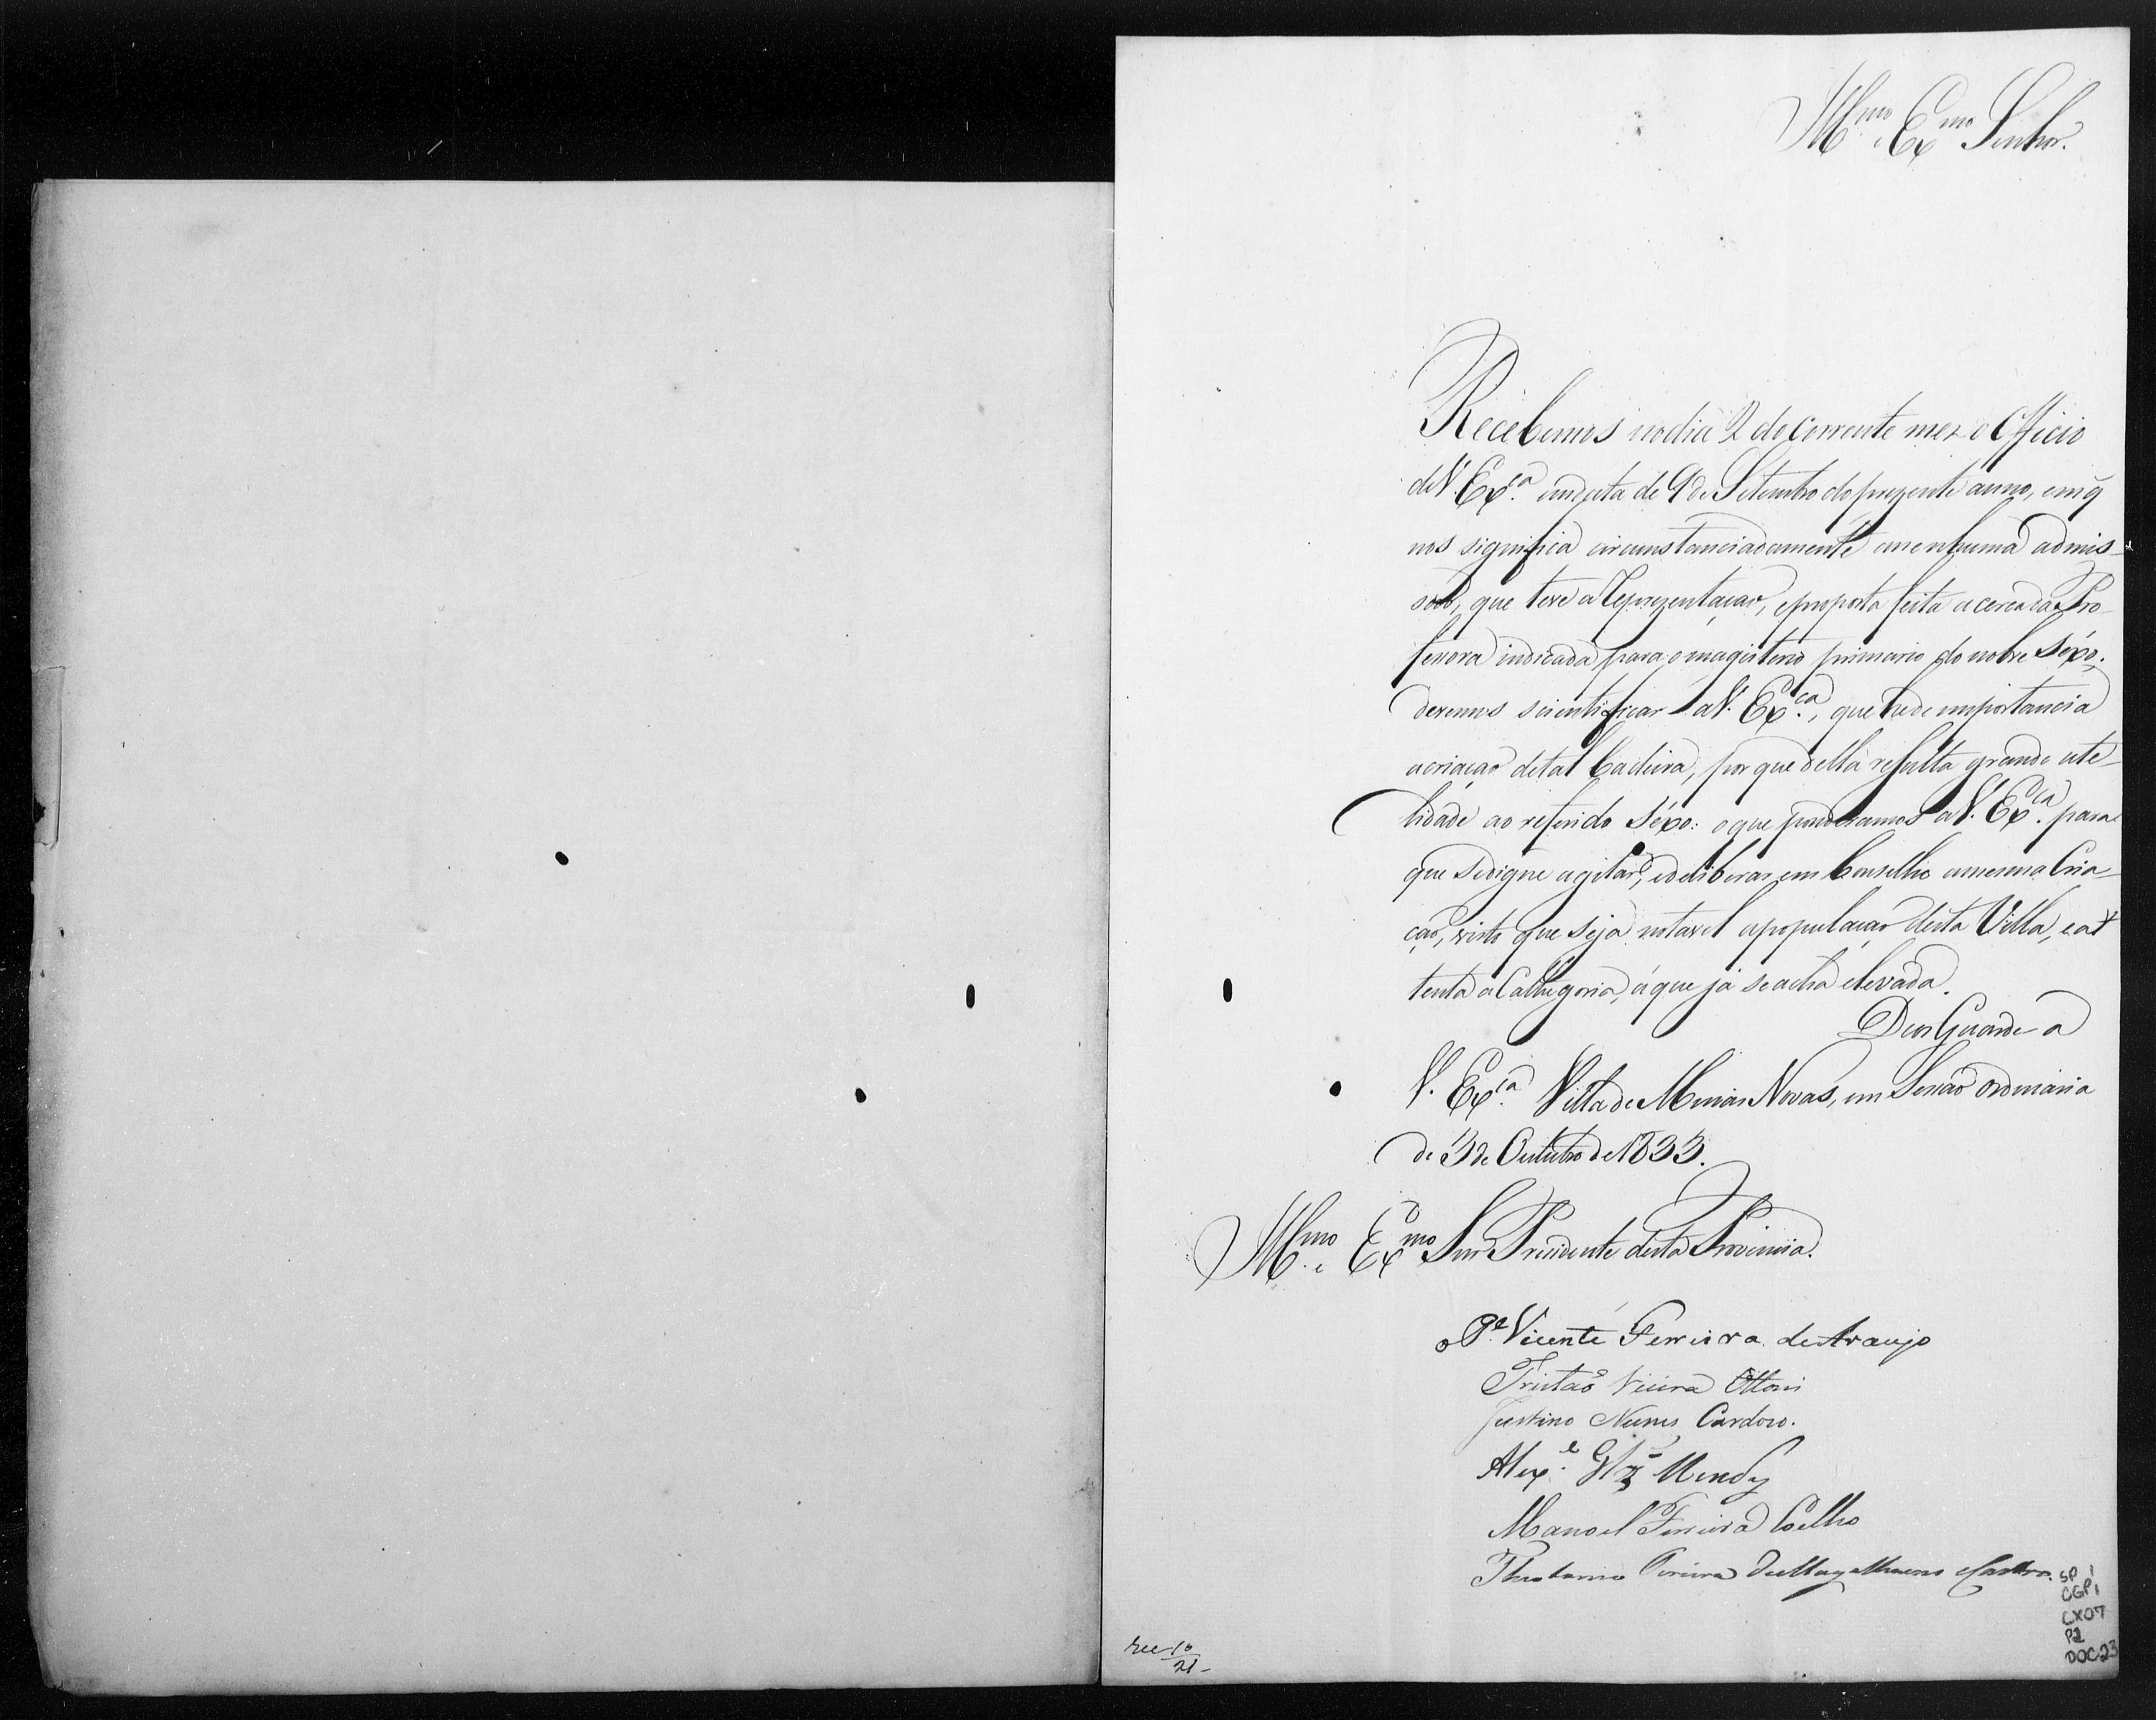 Illmo. e Exmo. Senhor.
Recebemos no dia 2 do corrente mez o Officio
de V. Exca. em data de 9 de Setembro do prezente anno, em q̃
nos significa circunstanciadamente a nenhuma admis-
são, que teve a Reprezentação, e proposta feita acerca da Pro-
fessora indicada para o magisterio primario do nobre séxo.
devemos scientificar a V. Exca., que he de importancia
a criação de tal Cadeira, por que della resulta grande ute-
lidade ao referido séxo: o que ponderamos a V. Exca. para
que se digne agitar, e deliberar em Conselho a mesma Cria-
ção, visto que seja notavel a população desta Villa, e at-
tenta a Cathegoria, á que já se acha elevada.
Deos Guarde a
V. Exca. Villa de Minas Novas, em Sessão ordinaria
de 3 de Outubro de 1833.
Illmo. e Exmo. Snr. Presidente desta Provincia.
o Pe. Vicente Ferreira de Araujo
Tristão Vieira Ottoni
Justino Nunes Cardozo.
Alexe. Glz Mendes
Manoel Ferreira Coelho
Theotonio Pereira de Magalhaens e Castro.
SP 1
CGP1
CX07
P2
DOC.23